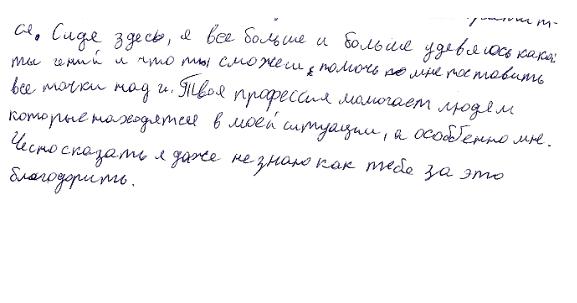 ся. Сидя здесь, я все больше и больше удевяюсь какой
ты гений и что ты сможеш помочь мне поставить
все точки над и. Твоя профессия момогает людям
которые находятся в моей ситуации, а особбенно мне.
Чесно сказать я даже не знаю как тебе за это
благодорить.